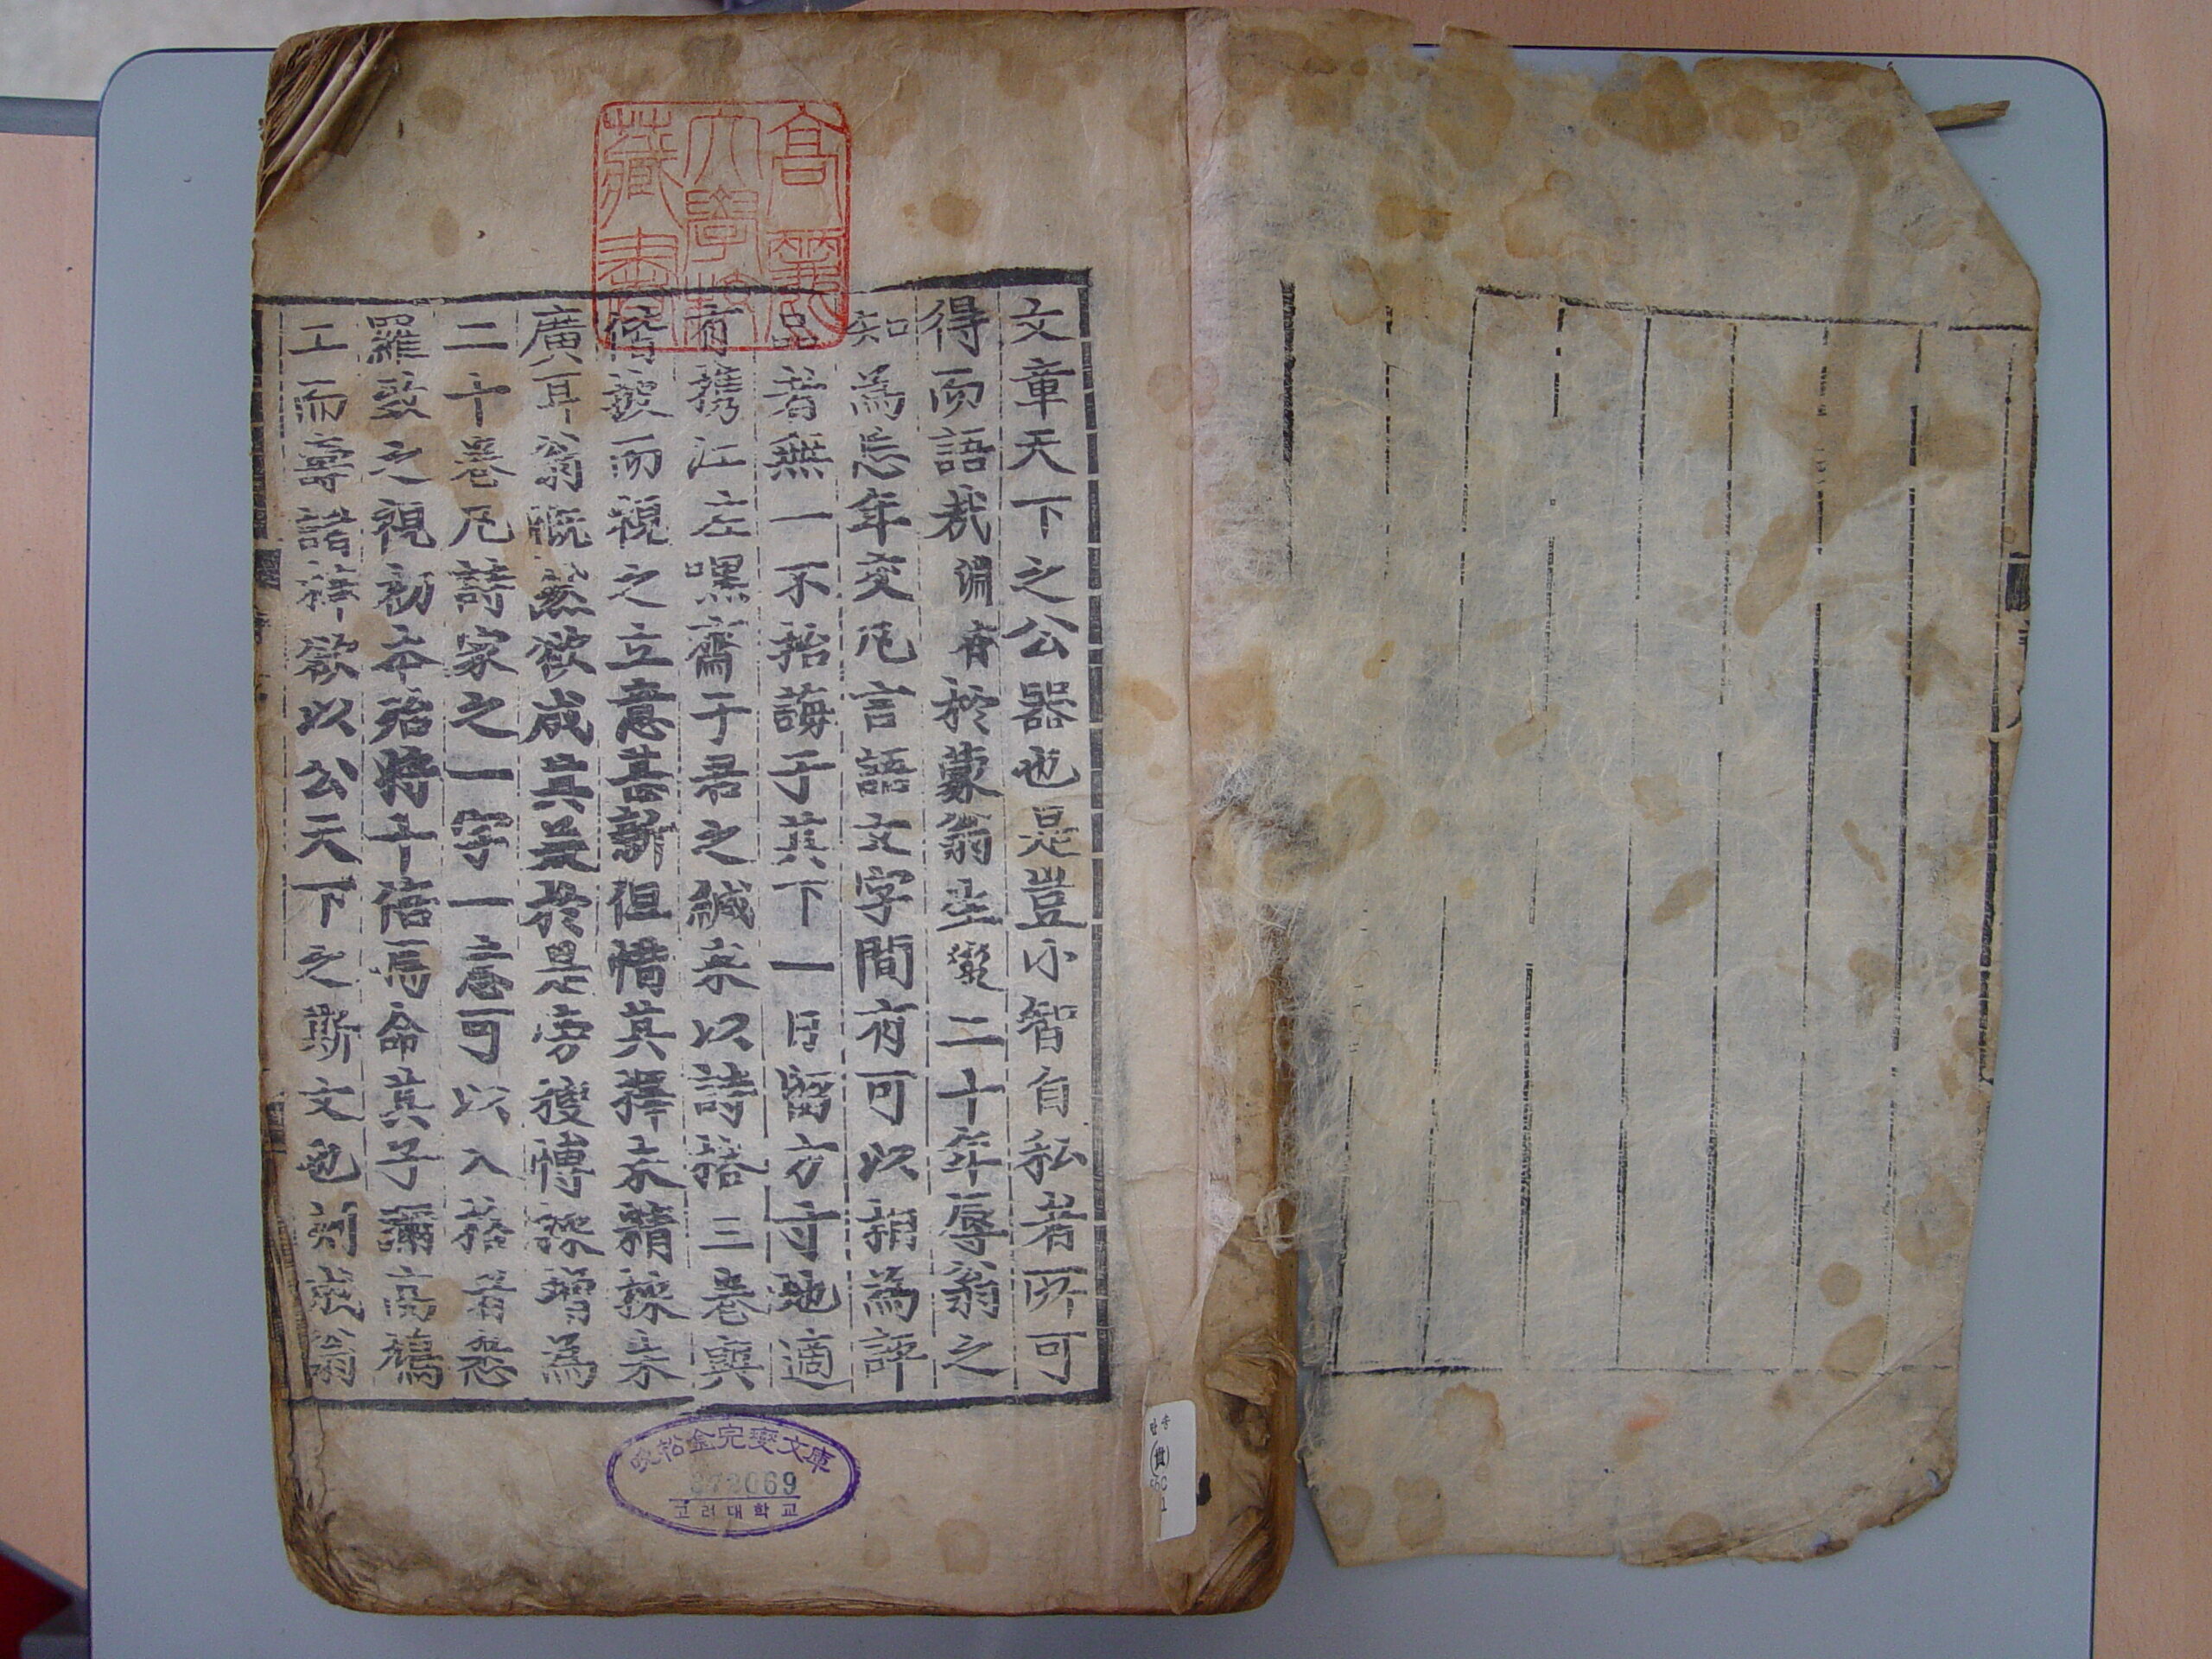 高麗
大學校
藏書
文章天下之公器也是豈小智自私者所可
得而語哉淵有於蒙翁坐燮二十年辱翁之
知為忘年交凡言語文字間有可以詣為評
品者無一不抬誨于其下一日留方寸地適
有携江左嘿齋于君之緘来以詩苔三卷與
偕披而視之立意甚新但惜其擇未精採未
廣耳翁慨然欲成其美於是旁搜博採增為
二十卷凡詩家之一字一意可以入苔者悉
羅致之視初本殆將十倍焉命其子瀰高藁
工而壽諸梓欲以公天下之斯文也刻成翁
晩松金完燮文庫
372069
고려대학교
만송
貴
1